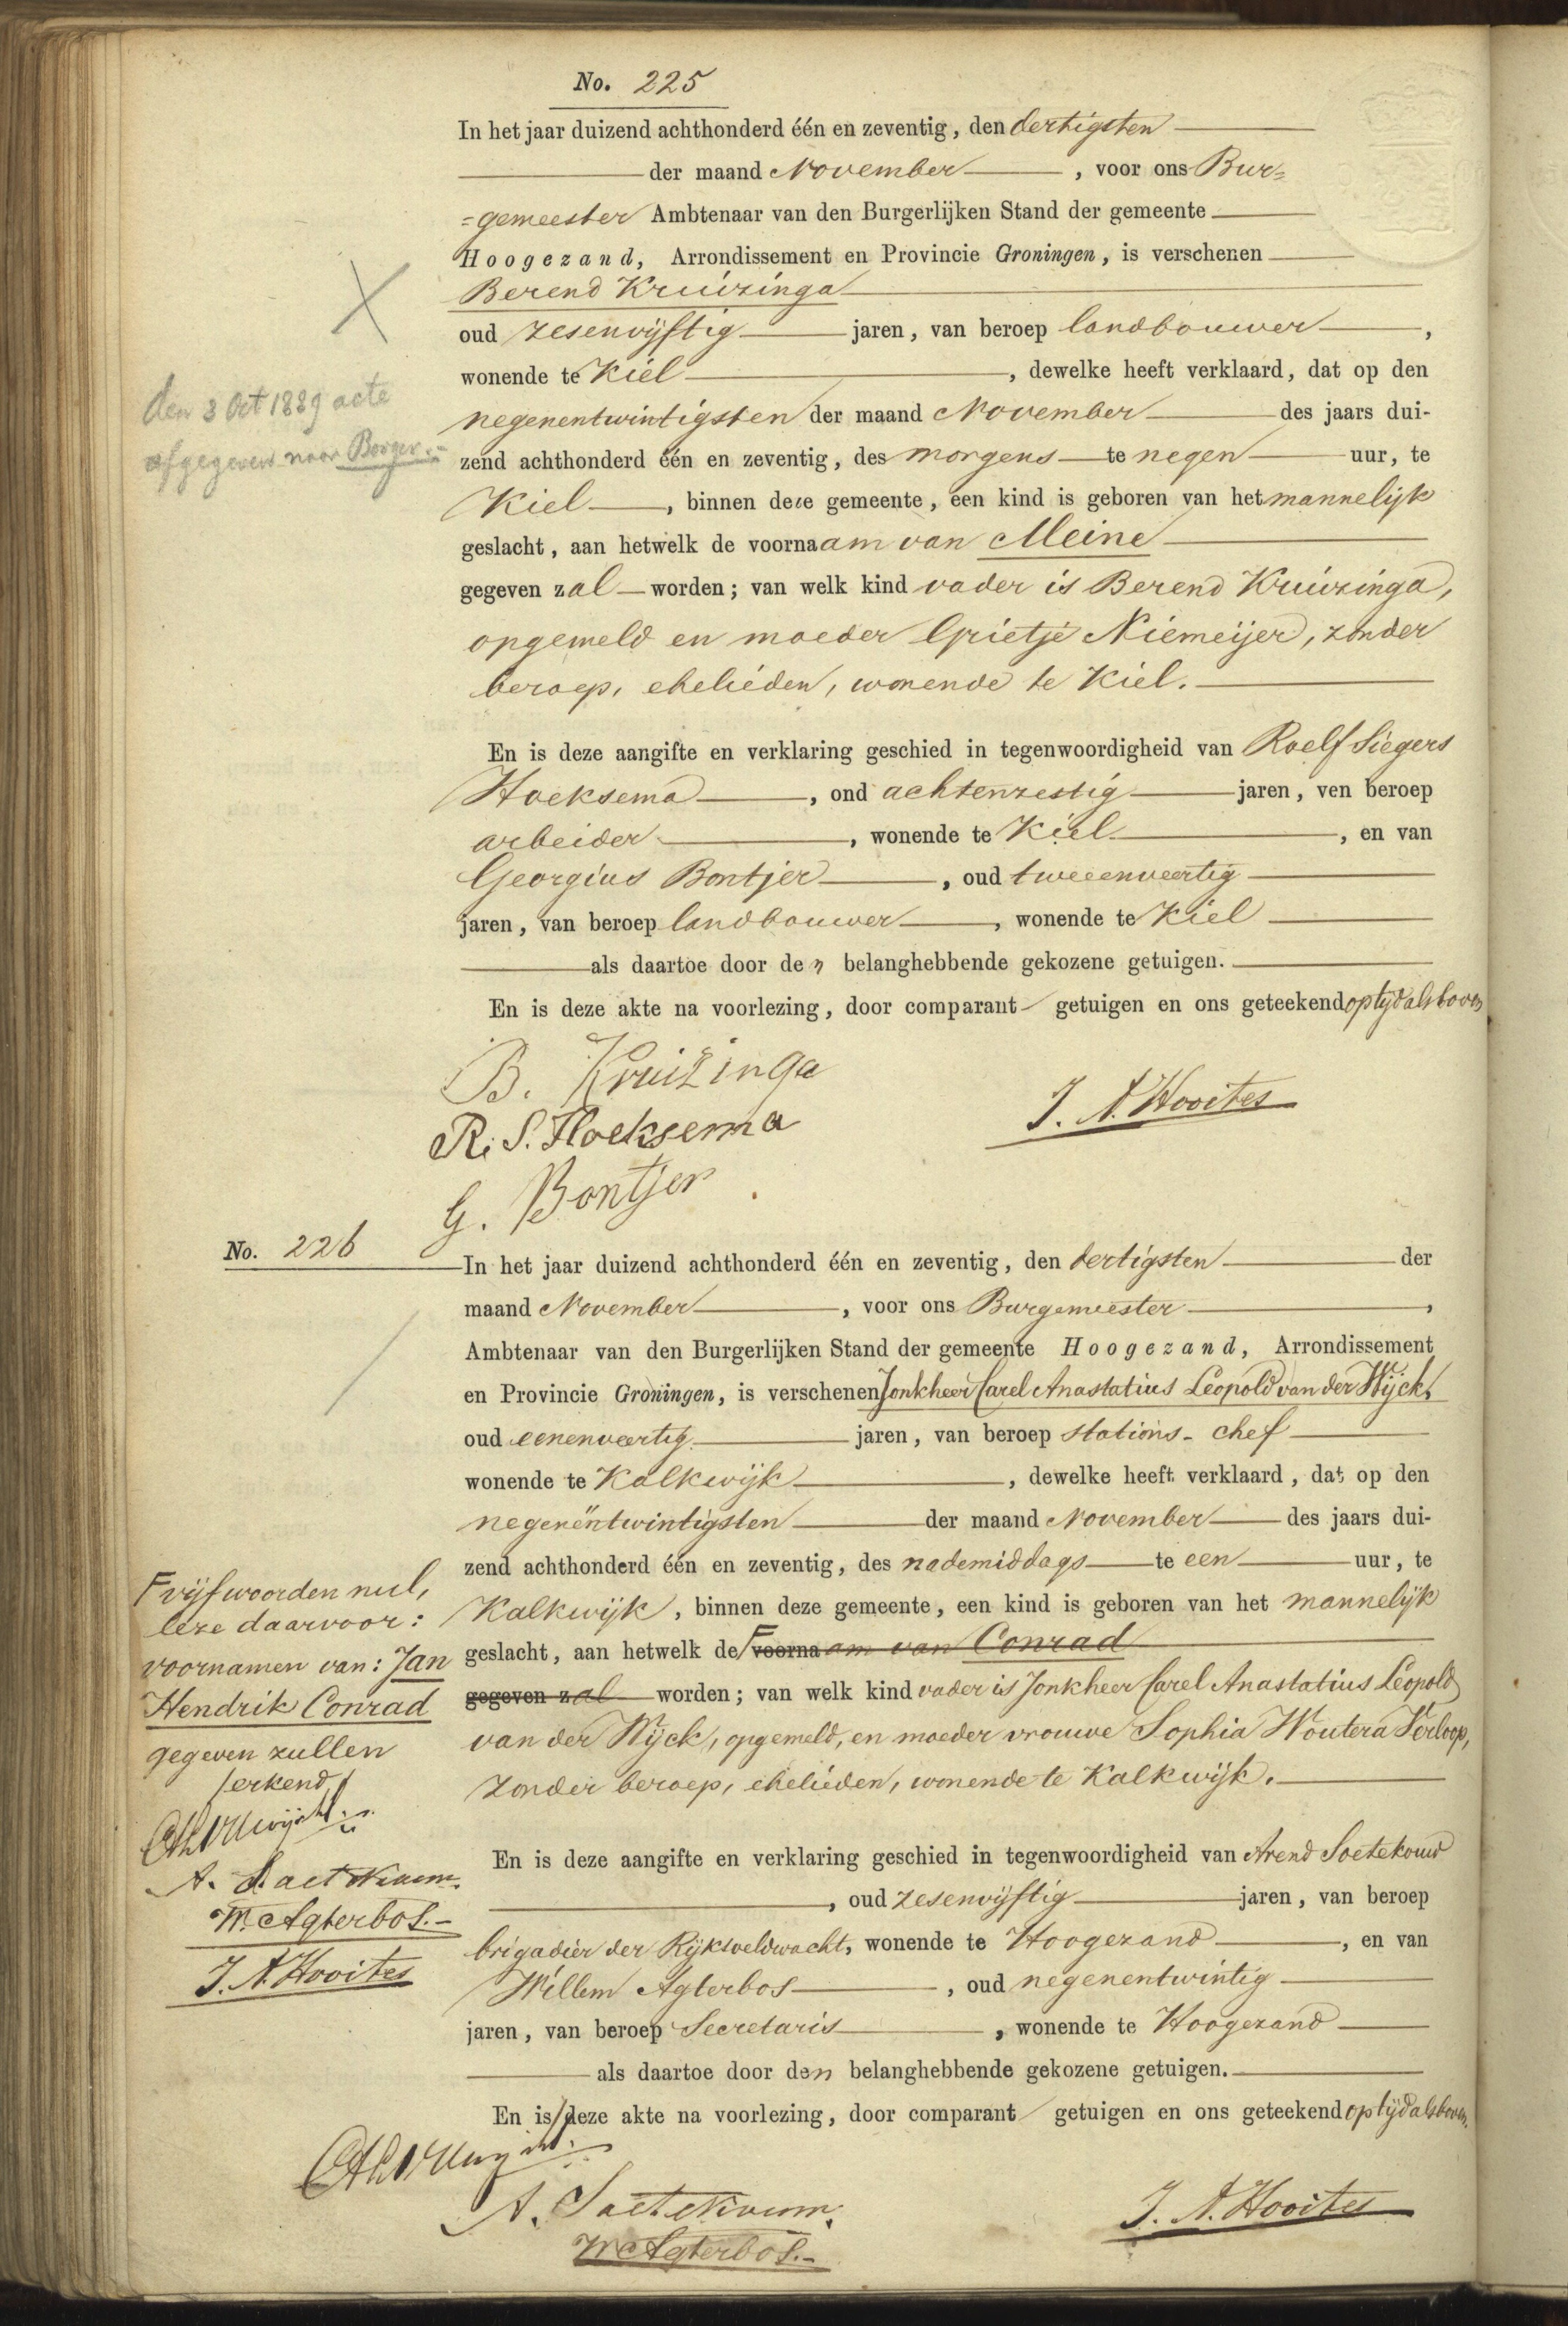 No. 225
In het jaar duizend achthonderd één en zeventig, den dertigsten
der maand November, voor ons Bur=
=gemeester Ambtenaar van den Burgerlijken Stand der gemeente
Hoogezand, Arrondissement en Provincie Groningen, is verschenen
Berend Kruizinga
oud zesenvijftig jaren, van beroep landbouwer,
wonende te Kiel, dewelke heeft verklaard, dat op den
den 3 Oct 1889 acte
negenentwintigsten der maand November des jaars dui-
afgegeven naar Borger.-
zend achthonderd één en zeventig, des morgens te negen uur, te
Kiel, binnen deze gemeente, een kind is geboren van het mannelijk
geslacht, aan hetwelk de voornaam van Meine
gegeven zal worden; van welk kind vader is Berend Kruizinga,
opgemeld en moeder Grietje Niemeijer, zonder
beroep, ehelieden, wonende te Kiel.
En is deze aangifte en verklaring geschied in tegenwoordigheid van Roelf Siegers
Hoeksema, ond achtenzestig jaren, ven beroep
arbeider, wonende te Kiel, en van
Georgius Bontjer, oud tweeenveertig
jaren, van beroep landbouwer, wonende te Kiel
als daartoe door den belanghebbende gekozene getuigen.
En is deze akte na voorlezing, door comparant getuigen en ons geteekend op tijd als boven
B. Kruizinga
J. A. Hooites
R. S. Hoeksema
G. Bontjer
No. 226
In het jaar duizend achthonderd één en zeventig, den dertigsten der
maand November, voor ons Burgemeester,
Ambtenaar van den Burgerlijken Stand der gemeente Hoogezand, Arrondissement
en Provincie Groningen, is verschenen Jonkheer Carel Anastatius Leopold van der Wijck,
oud eenenveertig jaren, van beroep stations-chef
wonende te Kalkwijk, dewelke heeft verklaard, dat op den
negenëntwintigsten der maand November des jaars dui-
zend achthonderd één en zeventig, des nademiddags te een uur, te
Kalkwijk, binnen deze gemeente, een kind is geboren van het mannelijk
geslacht, aan hetwelk de voornaam van Conrad
gegeven zal worden; van welk kind vader is Jonkheer Carel Anastatius Leopold
van der Wijck, opgemeld, en moeder vrouwe Sophia Woutera Verloop,
zonder beroep, ehelieden, wonende te Kalkwijk.
vijf woorden nul,
leze daarvoor:
voornamen van: Jan
Hendrik Conrad
gegeven zullen
/erkend/
W. Agterbos.-
J. A. Hooites
En is deze aangifte en verklaring geschied in tegenwoordigheid van Arend Soetekouw
, oud zesenvijftig jaren, van beroep
brigadier der Rijksveldwacht, wonende te Hoogezand, en van
Willem Agterbos, oud negenentwintig
jaren, van beroep Secretaris, wonende te Hoogezand
als daartoe door den belanghebbende gekozene getuigen.
En is deze akte na voorlezing, door comparant getuigen en ons geteekend op tijd als boven.
J. A. Hooites
W. Agterbos.-